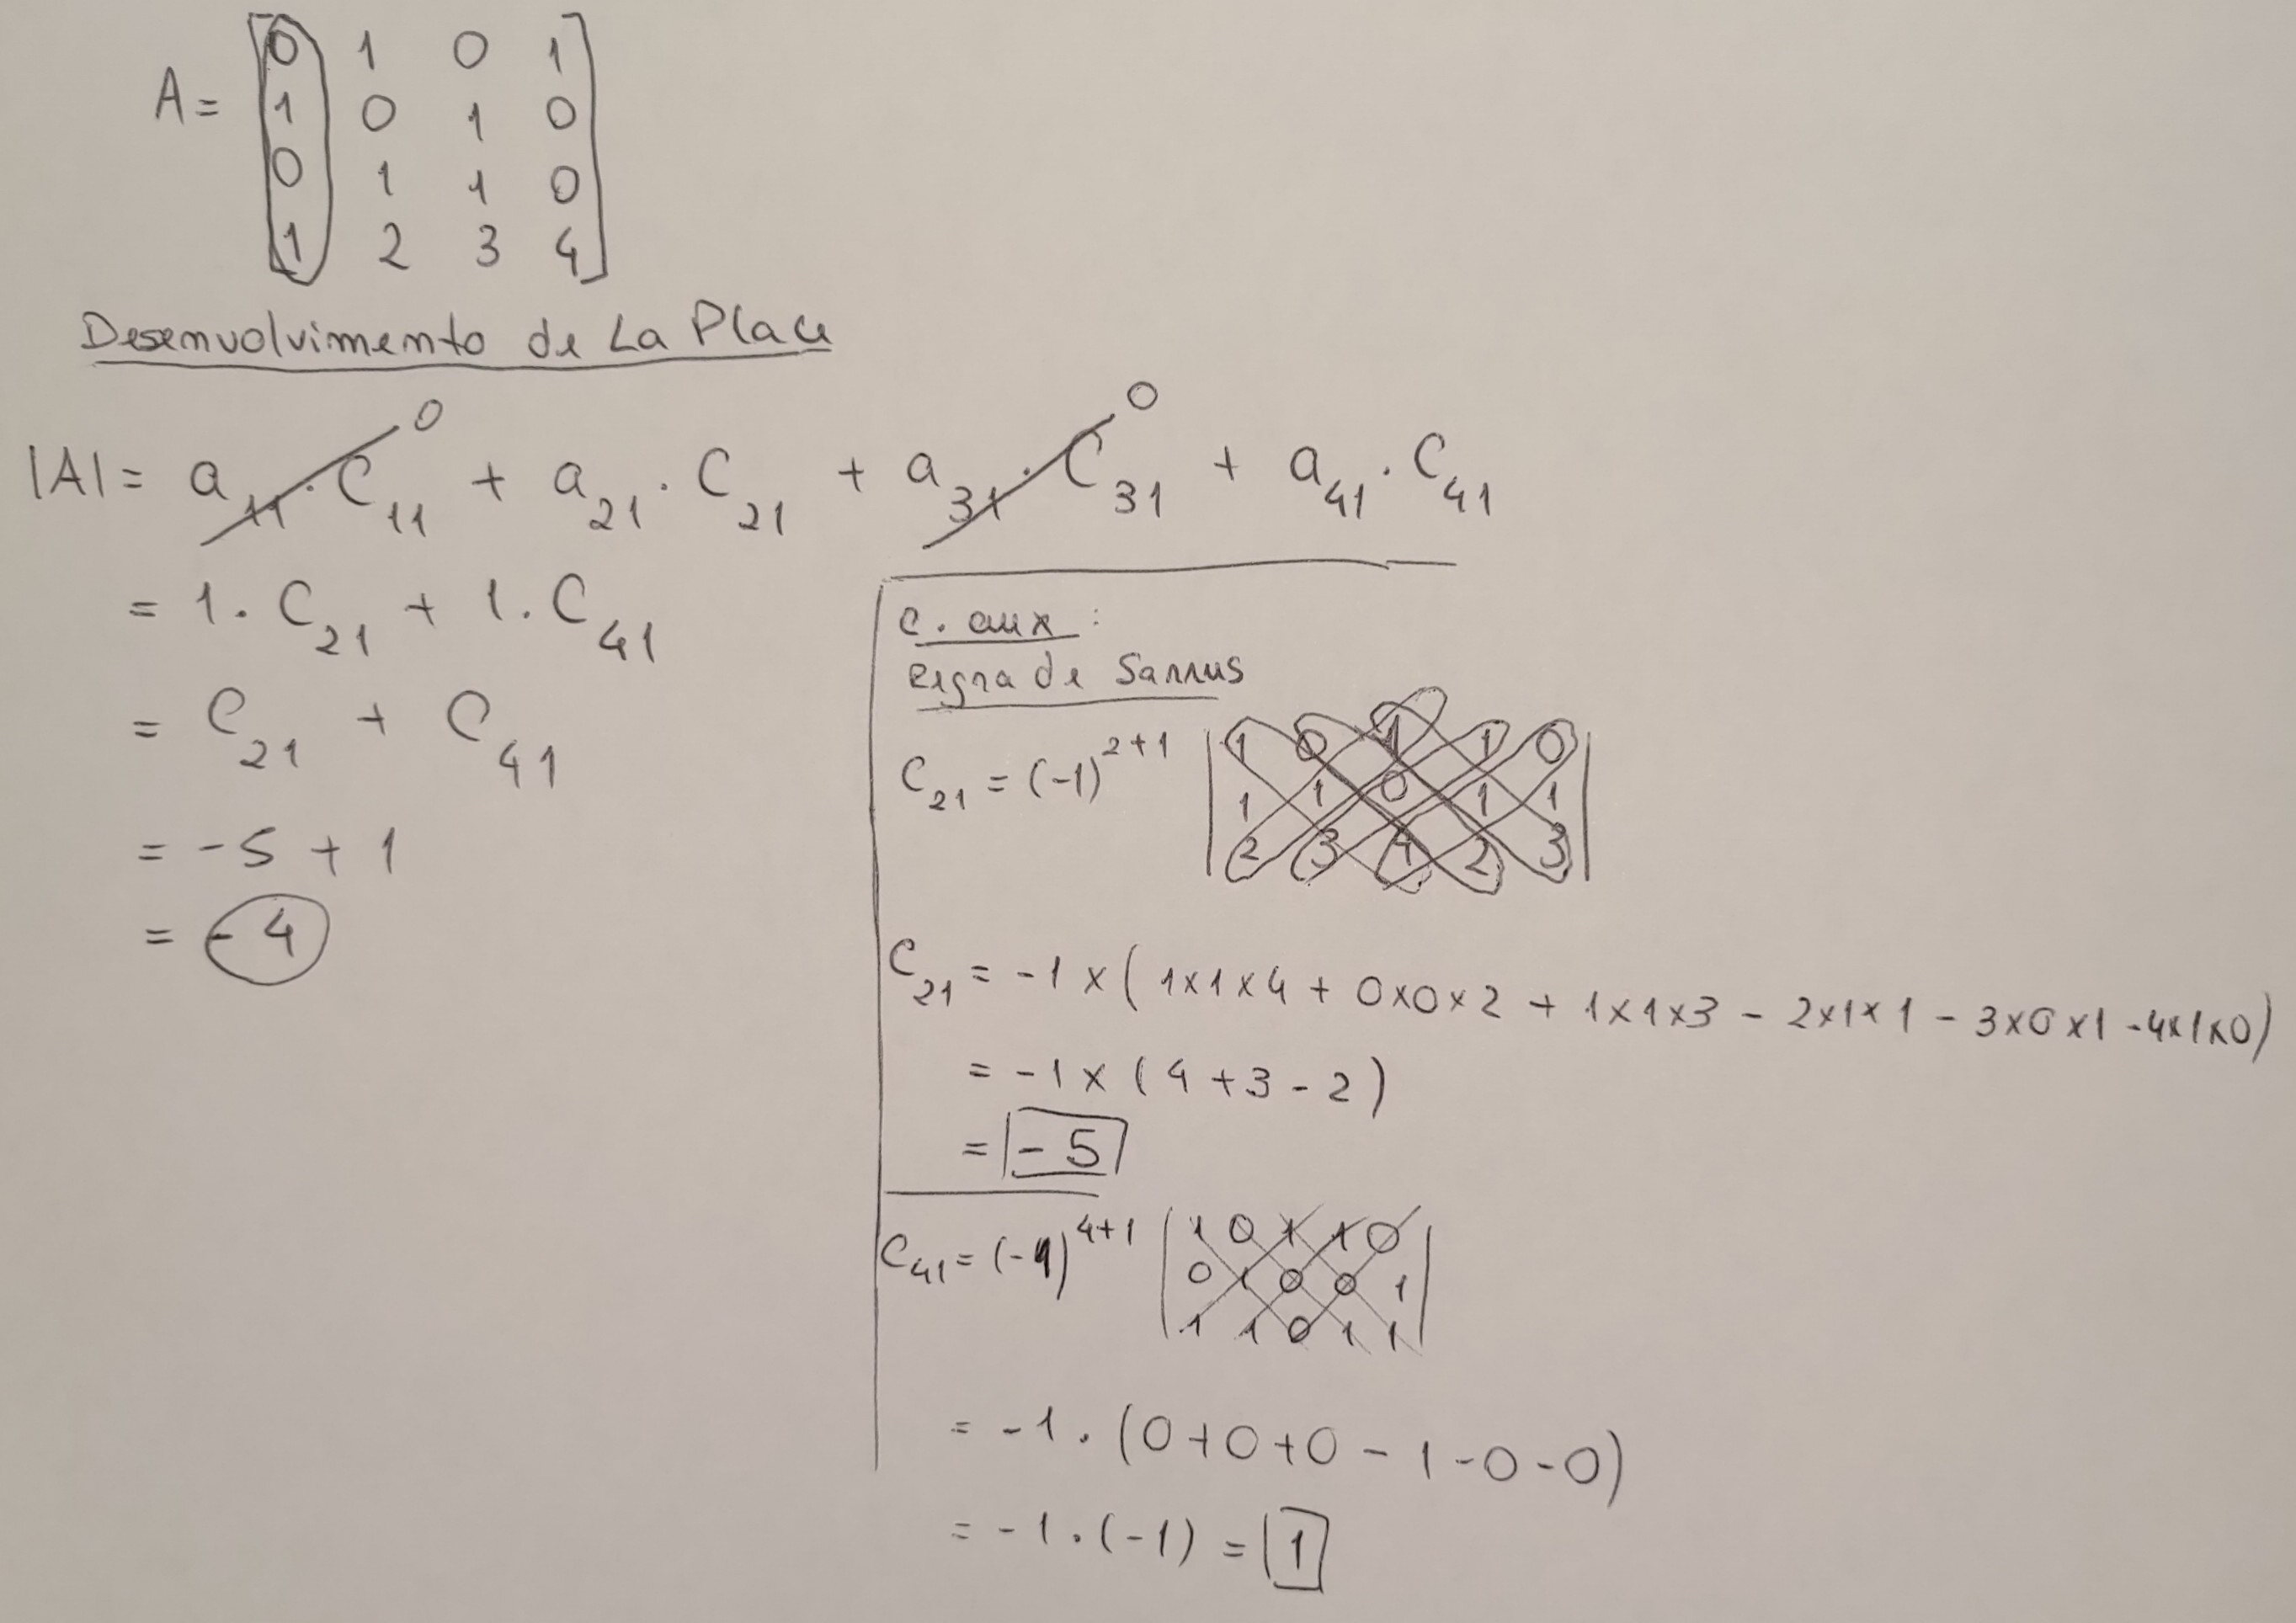 A = [0 1 0 1
1 0 1 0
0 1 1 0
1 2 3 4]
Desenvolvimento de La Place
|A| = a₁₁ · C₁₁ 0 + a₂₁ · C₂₁ + a₃₁ · C₃₁ 0 + a₄₁ · C₄₁
= 1 · C₂₁ + 1 · C₄₁
= C₂₁ + C₄₁
= -5 + 1
= -4
C. aux :
Regra de Sarrus
C₂₁ = (-1)²⁺¹ |1 0 1 1 0
1 1 0 1 1
2 3 4 2 3|
C₂₁ = -1 × ( 1×1×4 + 0×0×2 + 1×1×3 - 2×1×1 - 3×0×1 - 4×1×0)
= -1 × ( 4 + 3 - 2 )
= -5
C₄₁ = (-1)⁴⁺¹ |1 0 1 1 0
0 1 0 0 1
1 1 0 1 1|
= -1 . (0 + 0 + 0 - 1 - 0 - 0)
= -1 . (-1) = 1